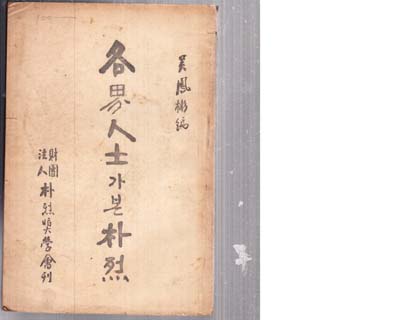 吳鳳彬編
各界人士가본朴烈
財團法人朴烈奬學會刊